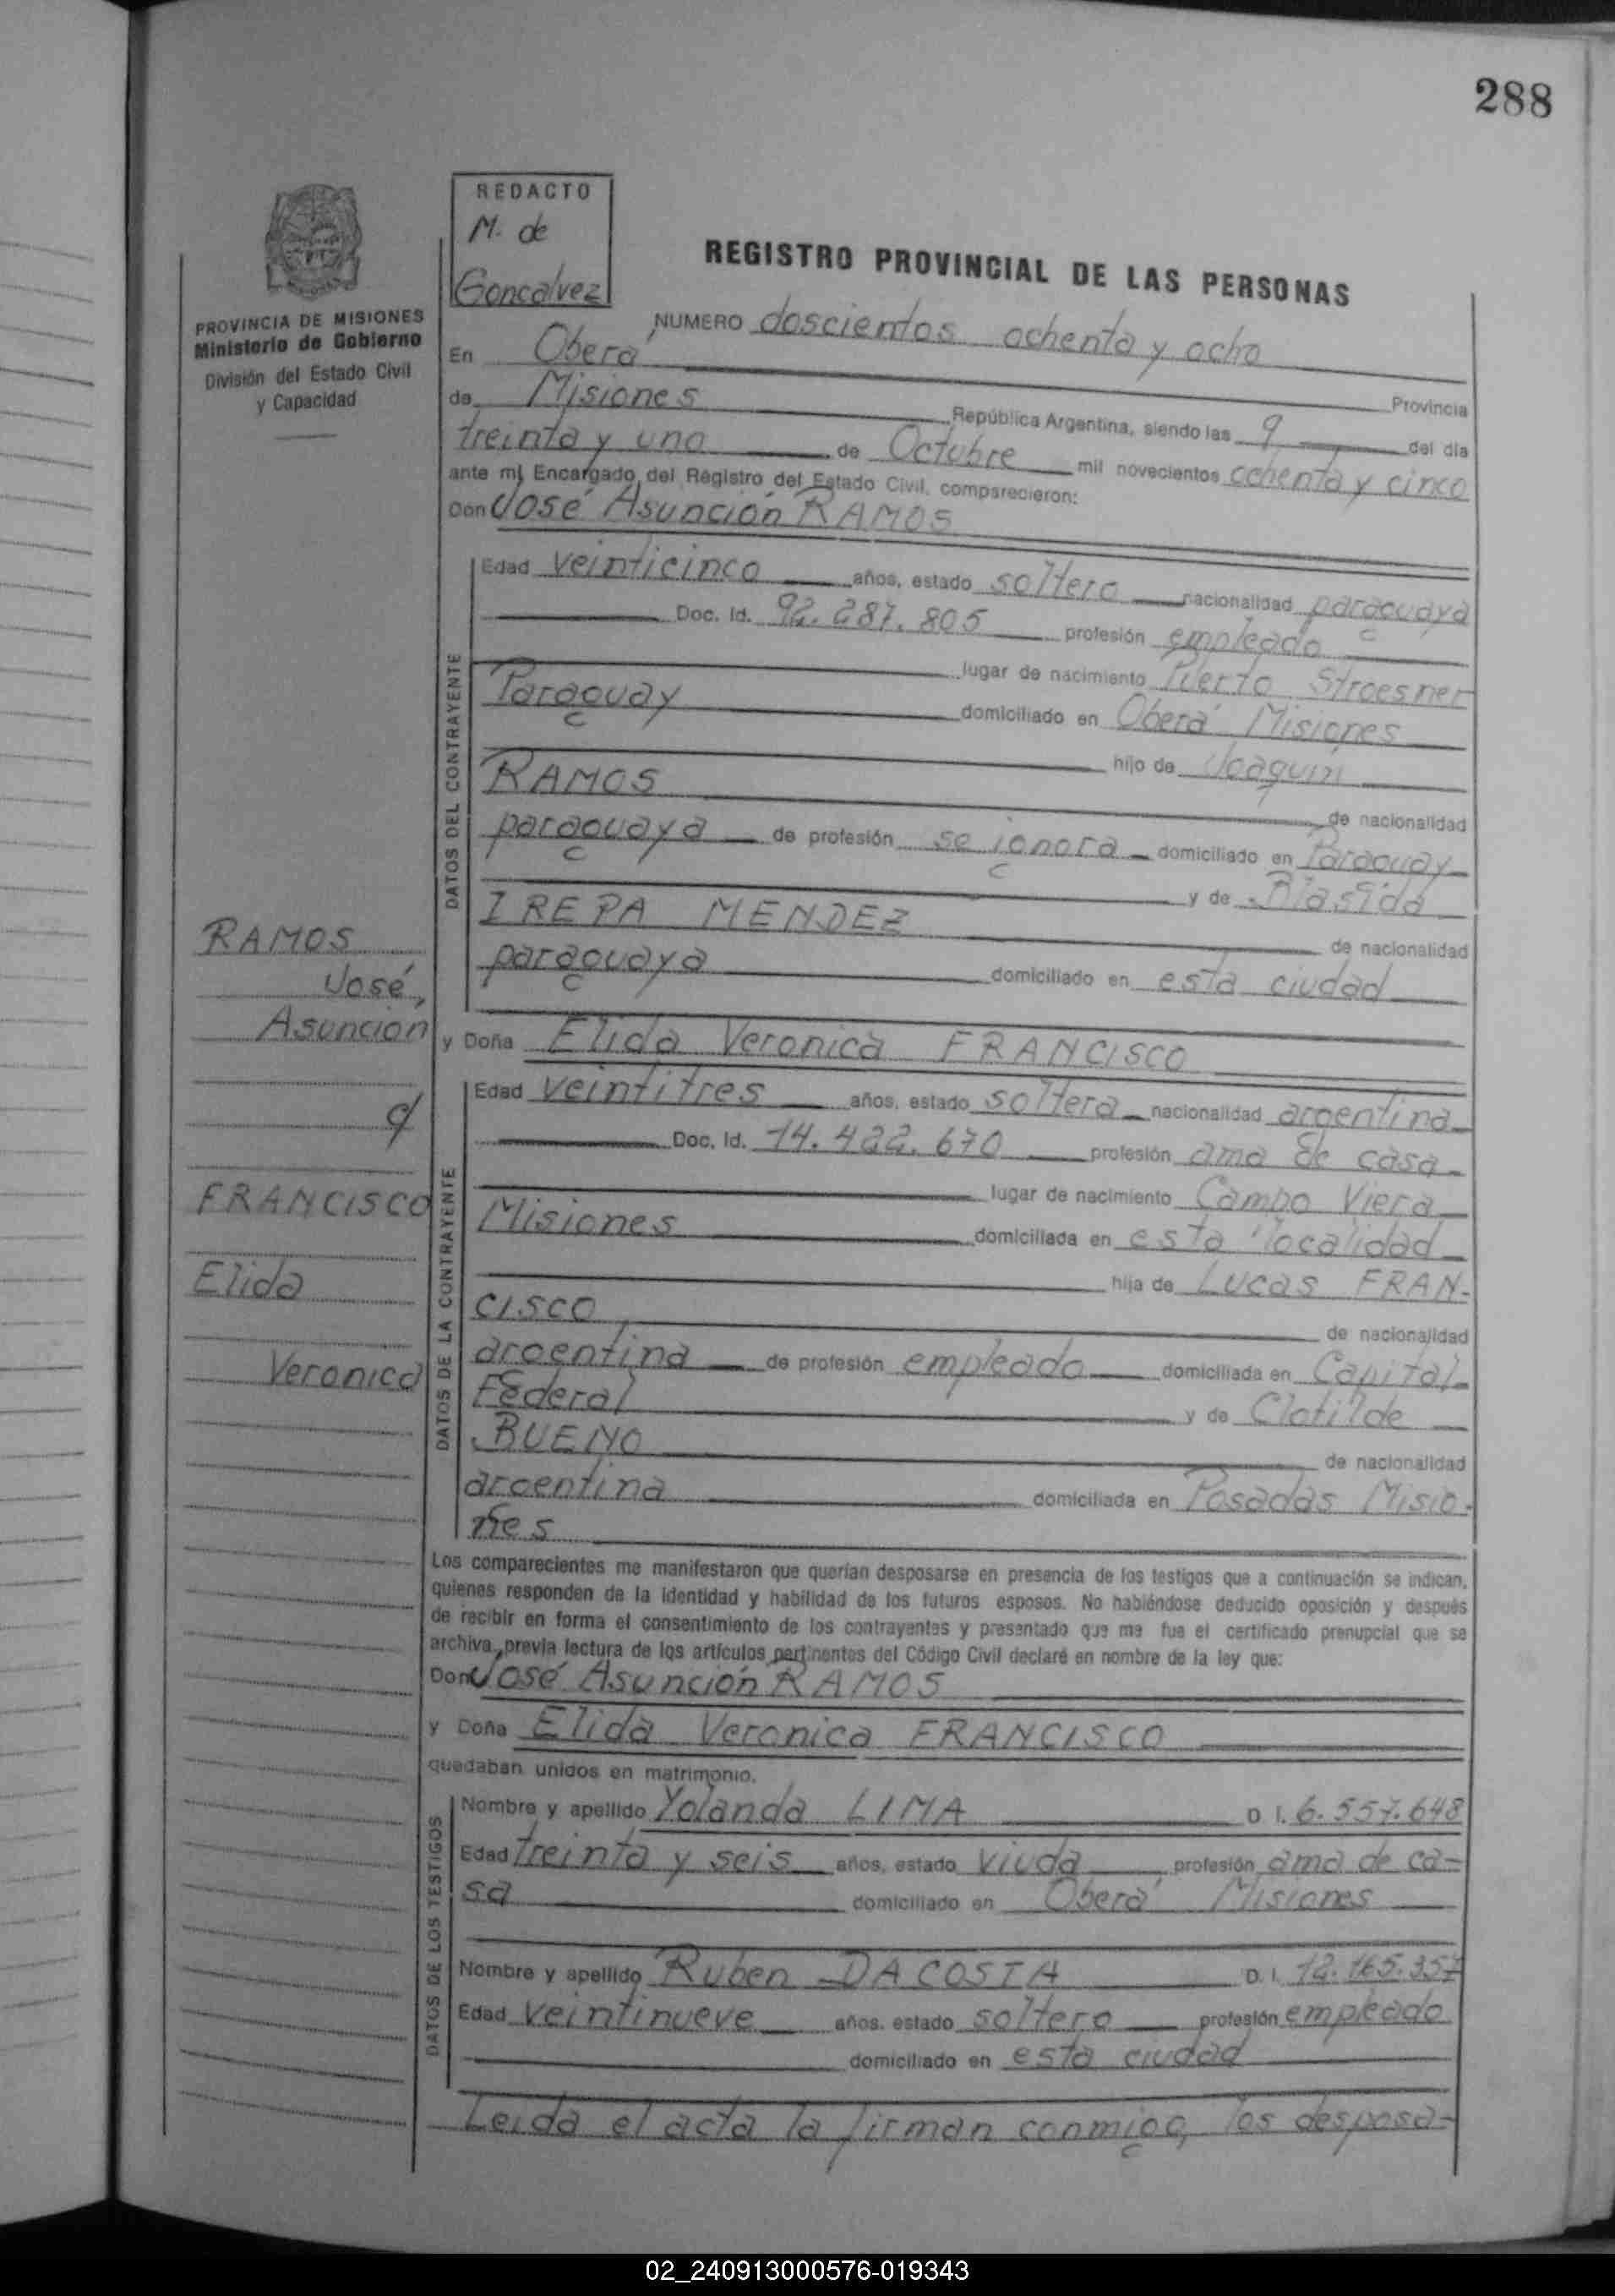 288
REDACTO
M. de
Goncalvez
PROVINCIA DE MISIONES
Ministerio de Gobierno
División del Estado Civil
y Capacidad
REGISTRO PROVINCIAL DE LAS PERSONAS
NUMERO doscientos ochenta y ocho
En Oberá Provincia
de Misiones República Argentina, siendo las 9 del día
treinta y uno de Octubre mil novecientos ochenta y cinco
ante mí Encargado del Registro del Estado Civil, comparecieron:
Don José Asunción RAMOS
DATOS DEL CONTRAYENTE
Edad veinticinco años, estado soltero nacionalidad paraguaya
Doc. Id. 92.287.805 profesión empleado
lugar de nacimiento Puerto Stroesner
Paraguay domiciliado en Oberá Misiones
hijo de Joaquin
RAMOS de nacionalidad
paraguaya de profesión se ignora domiciliado en Paraguay
y de
IREPA MENDEZ de nacionalidad
paraguaya domiciliado en esta ciudad
y Doña Elida Veronica FRANCISCO
RAMOS
José,
Asunción
c/
FRANCISCO
Elida
Veronica
DATOS DE LA CONTRAYENTE
Edad veintitres años, estado soltera nacionalidad argentina
Doc. Id. 14.422.670 profesión ama de casa
lugar de nacimiento Campo Viera
Misiones domiciliada en esta localidad
hija de Lucas FRAN-
CISCO de nacionalidad
argentina de profesión empleado domiciliada en Capital
Federal y de Clotilde
BUENO de nacionalidad
argentina domiciliada en Posadas Misio-
nes
Los comparecientes me manifestaron que querían desposarse en presencia de los testigos que a continuación se indican,
quienes responden de la identidad y habilidad de los futuros esposos. No habiéndose deducido oposición y después
de recibir en forma el consentimiento de los contrayentes y presentado que me fue el certificado prenupcial que se
archiva, previa lectura de los artículos pertinentes del Código Civil declaré en nombre de la ley que:
Don José Asunción RAMOS
y Doña Elida Veronica FRANCISCO
quedaban unidos en matrimonio.
DATOS DE LOS TESTIGOS
Nombre y apellido Yolanda LIMA D I. 6.557.648
Edad treinta y seis años, estado viuda profesión ama de ca-
sa domiciliado en Oberá Misiones
Nombre y apellido Ruben DA COSTA D. I. 12.165.357
Edad veintinueve años, estado soltero profesión empleado
domiciliado en esta ciudad
Leida el acta la firman conmigo, los desposa-
02_240913000576-019343